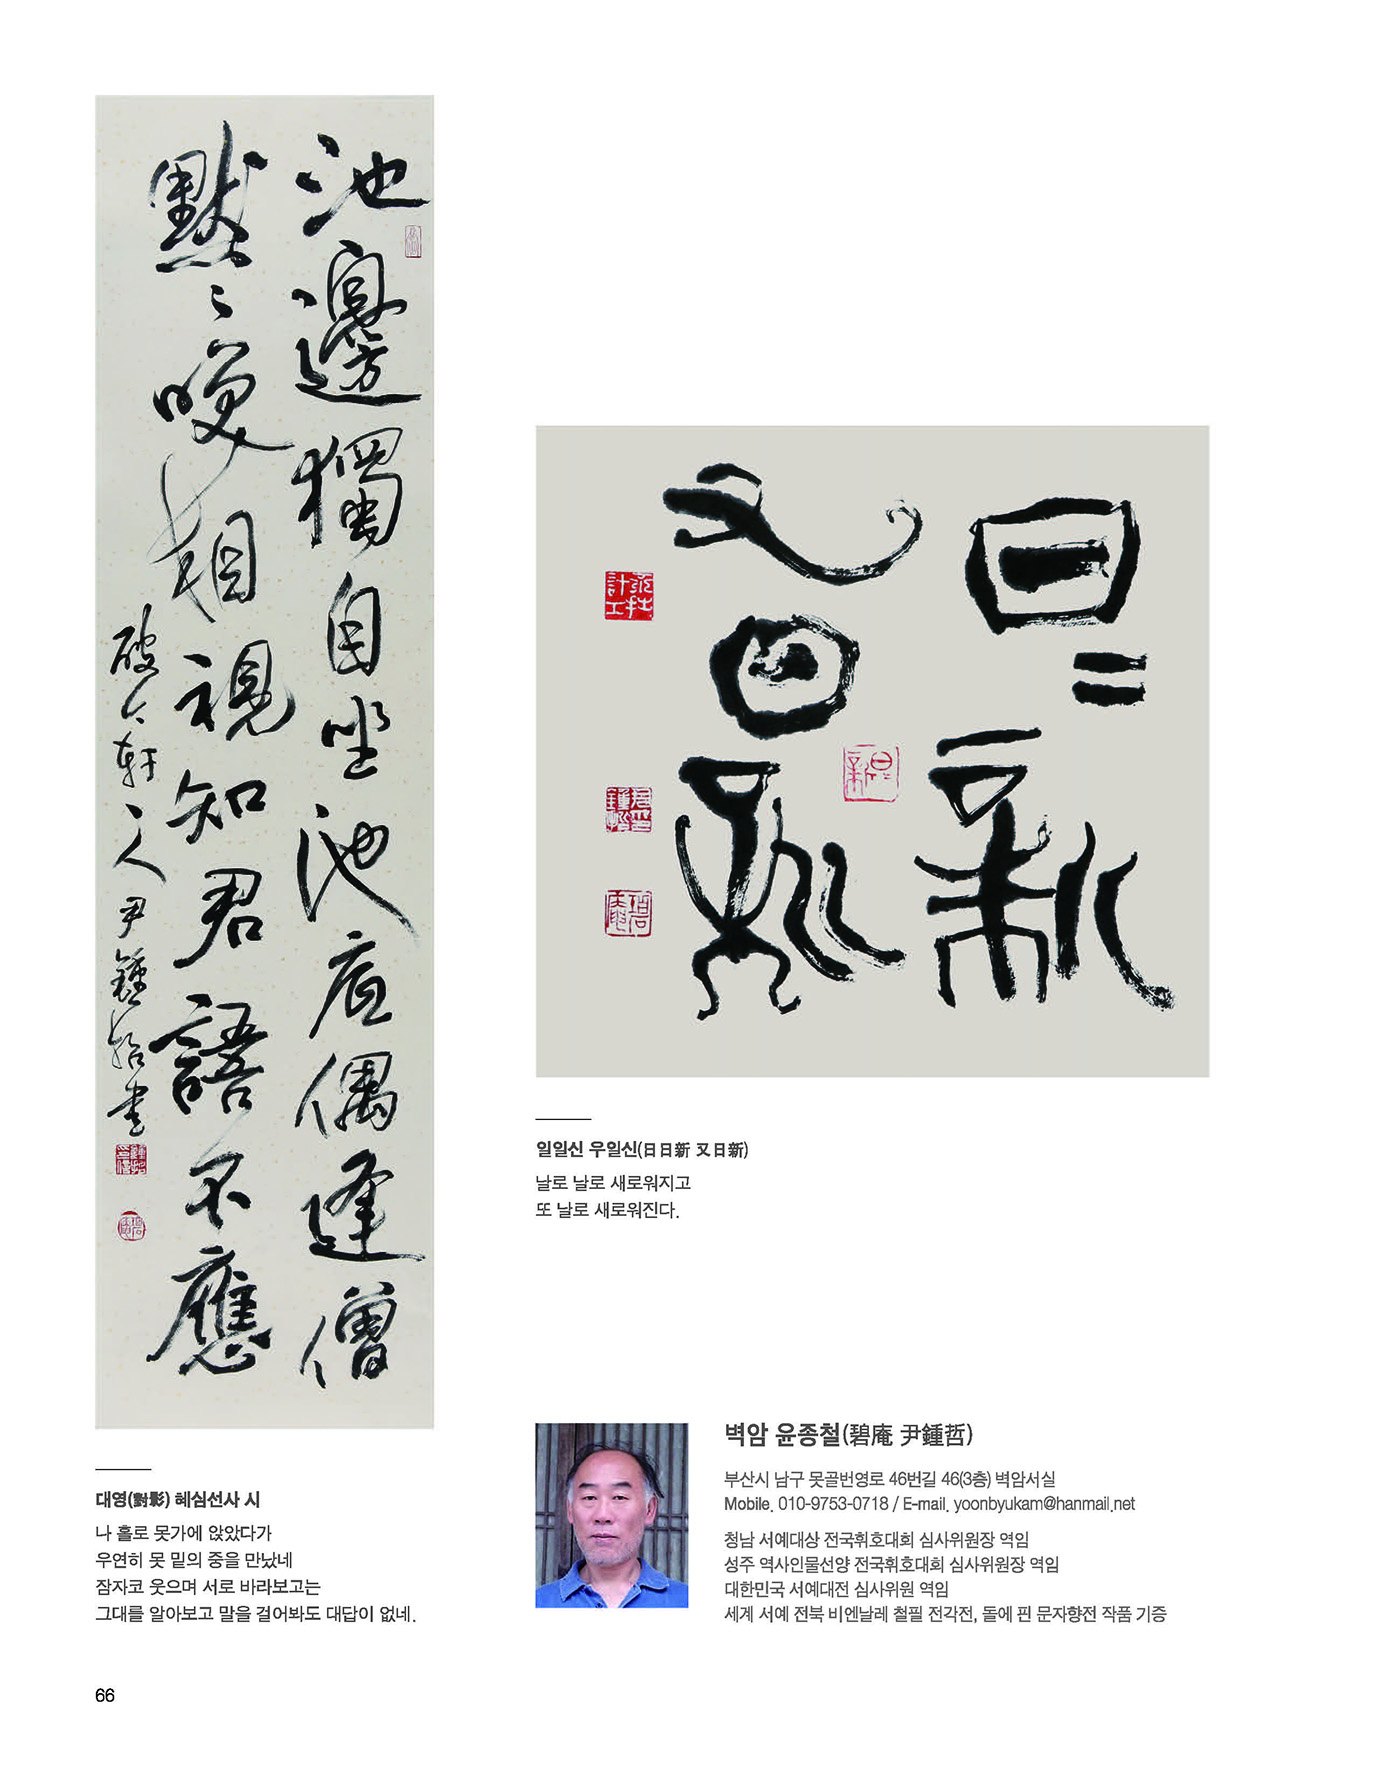 池邊獨自坐池底偶逢僧
默〻咲相視知君語不應
破人軒主人 尹鍾哲書
日〻新
又日新
일일신 우일신(日日新 又日新)
날로 날로 새로워지고
또 날로 새로워진다.
대영(對影) 혜심선사 시
나 홀로 못가에 앉았다가
우연히 못 밑의 중을 만났네
잠자코 웃으며 서로 바라보고는
그대를 알아보고 말을 걸어봐도 대답이 없네.
벽암 윤종철(碧庵 尹鍾哲)
부산시 남구 못골번영로 46번길 46(3층) 벽암서실
Mobile. 010-9753-0718 / E-mail. yoonbyukam@hanmail.net
청남 서예대상 전국휘호대회 심사위원장 역임
성주 역사인물선양 전국휘호대회 심사위원장 역임
대한민국 서예대전 심사위원 역임
세계 서예 전북 비엔날레 철필 전각전, 돌에 핀 문자향전 작품 기증
66